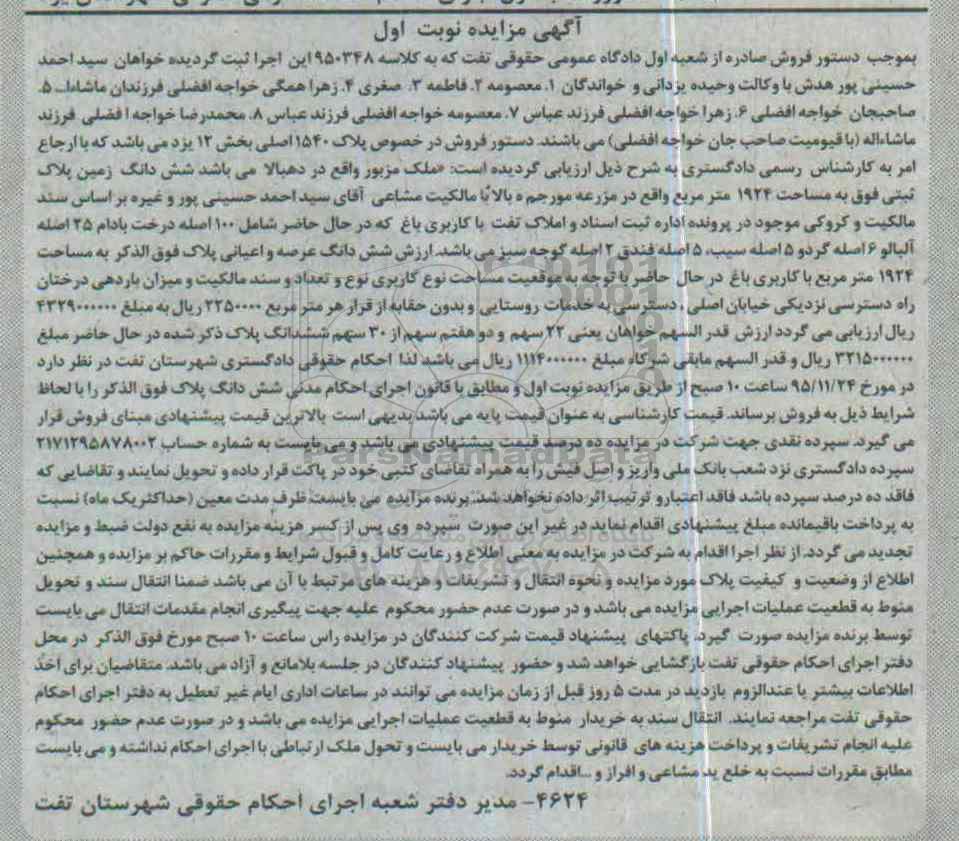 آگهی مزایده نوبت اول
بموجب دستور فروش صادره از شعبه اول دادگاه عمومی حقوقی تفت که به کلاسه ۹۵۰۳۴۸ این اجرا ثبت گردیده خواهان سید احمد
حسینی پور هدش با وکالت وحیده یزدانی و خواندگان ۱. معصومه ۲. فاطمه ۳. صغری ۴. زهرا همگی خواجه افضلی فرزندان ماشاءا... ۵.
صاحبجان خواجه افضلی ۶. زهرا خواجه افضلی فرزند عباس ۷. معصومه خواجه افضلی فرزند عباس ۸. محمدرضا خواجه افضلی فرزند
ماشاءاله (با قیومیت صاحب جان خواجه افضلی) می باشند. دستور فروش در خصوص پلاک ۱۵۴۰ اصلی بخش ۱۲ یزد می باشد که با ارجاع
امر به کارشناس رسمی دادگستری به شرح ذیل ارزیابی گردیده است: «ملک مزبور واقع در دهبالا می باشد شش دانگ زمین پلاک
ثبتی فوق به مساحت ۱۹۲۴ متر مربع واقع در مزرعه مورجم ه بالا با مالکیت مشاعی آقای سید احمد حسینی پور و غیره بر اساس سند
مالکیت و کروکی موجود در پرونده اداره ثبت اسناد و املاک تفت با کاربری باغ که در حال حاضر شامل ۱۰۰ اصله درخت بادام ۳۵ اصله
آلبالو ۶ اصله گردو ۵ اصله سیب، ۵ اصله فندق ۲ اصله گوجه سبز می باشد. ارزش شش دانگ عرصه و اعیانی پلاک فوق الذکر به مساحت
۱۹۲۴ متر مربع با کاربری باغ در حال حاضر با توجه به موقعیت مساحت نوع کاربری نوع و تعداد و سند مالکیت و میزان باردهی درختان
راه دسترسی نزدیکی خیابان اصلی ، دسترسی به خدمات روستایی و بدون حقابه از قرار هر متر مربع ۲۲۵۰۰۰۰ ریال به مبلغ ۴۳۲۹۰۰۰۰۰۰
ریال ارزیابی می گردد ارزش قدر السهم خواهان یعنی ۲۲ سهم و دو هفتم سهم از ۳۰ سهم ششدانگ پلاک ذکر شده در حال حاضر مبلغ
۳۲۱۵۰۰۰۰۰۰ ریال و قدر السهم مابقی شرکاء مبلغ ۱۱۱۴۰۰۰۰۰۰ ریال می باشد لذا احکام حقوقی دادگستری شهرستان تفت در نظر دارد
در مورخ ۹۵/۱۱/۲۴ ساعت ۱۰ صبح از طریق مزایده نوبت اول و مطابق با قانون اجرای احکام مدنی شش دانگ پلاک فوق الذکر را با لحاظ
شرایط ذیل به فروش برساند. قیمت کارشناسی به عنوان قیمت پایه می باشد بدیهی است بالاترین قیمت پیشنهادی مبنای فروش قرار
می گیرد. سپرده نقدی جهت شرکت در مزایده ده درصد قیمت پیشنهادی می باشد و می بایست به شماره حساب ۲۱۷۱۲۹۵۸۷۸۰۰۲
سپرده دادگستری نزد شعب بانک ملی واریز و اصل فیش را به همراه تقاضای کتبی خود در پاکت قرار داده و تحویل نمایند و تقاضایی که
فاقد ده درصد سپرده باشد فاقد اعتبار و ترتیب اثر داده نخواهد شد. برنده مزایده می بایست ظرف مدت معین (حداکثر یک ماه) نسبت
به پرداخت باقیمانده مبلغ پیشنهادی اقدام نماید در غیر این صورت سپرده وی پس از کسر هزینه مزایده به نفع دولت ضبط و مزایده
تجدید می گردد. از نظر اجرا اقدام به شرکت در مزایده به معنی اطلاع و رعایت کامل و قبول شرایط و مقررات حاکم بر مزایده و همچنین
اطلاع از وضعیت و کیفیت پلاک مورد مزایده و نحوه انتقال و تشریفات و هزینه های مرتبط با آن می باشد ضمنا انتقال سند و تحویل
منوط به قطعیت عملیات اجرایی مزایده می باشد و در صورت عدم حضور محکوم علیه جهت پیگیری انجام مقدمات انتقال می بایست
توسط برنده مزایده صورت گیرد. پاکتهای پیشنهاد قیمت شرکت کنندگان در مزایده راس ساعت ۱۰ صبح مورخ فوق الذکر در محل
دفتر اجرای احکام حقوقی تفت بازگشایی خواهد شد و حضور پیشنهاد کنندگان در جلسه بلامانع و آزاد می باشد. متقاضیان برای اخذ
اطلاعات بیشتر یا عندالزوم بازدید در مدت ۵ روز قبل از زمان مزایده می توانند در ساعات اداری ایام غیر تعطیل به دفتر اجرای احکام
حقوقی تفت مراجعه نمایند. انتقال سند به خریدار منوط به قطعیت عملیات اجرایی مزایده می باشد و در صورت عدم حضور محکوم
علیه انجام تشریفات و پرداخت هزینه های قانونی توسط خریدار می بایست و تحول ملک ارتباطی با اجرای احکام نداشته و می بایست
مطابق مقررات نسبت به خلع ید مشاعی و افراز و ...اقدام گردد.
۴۶۲۴- مدیر دفتر شعبه اجرای احکام حقوقی شهرستان تفت
ParsNamadData